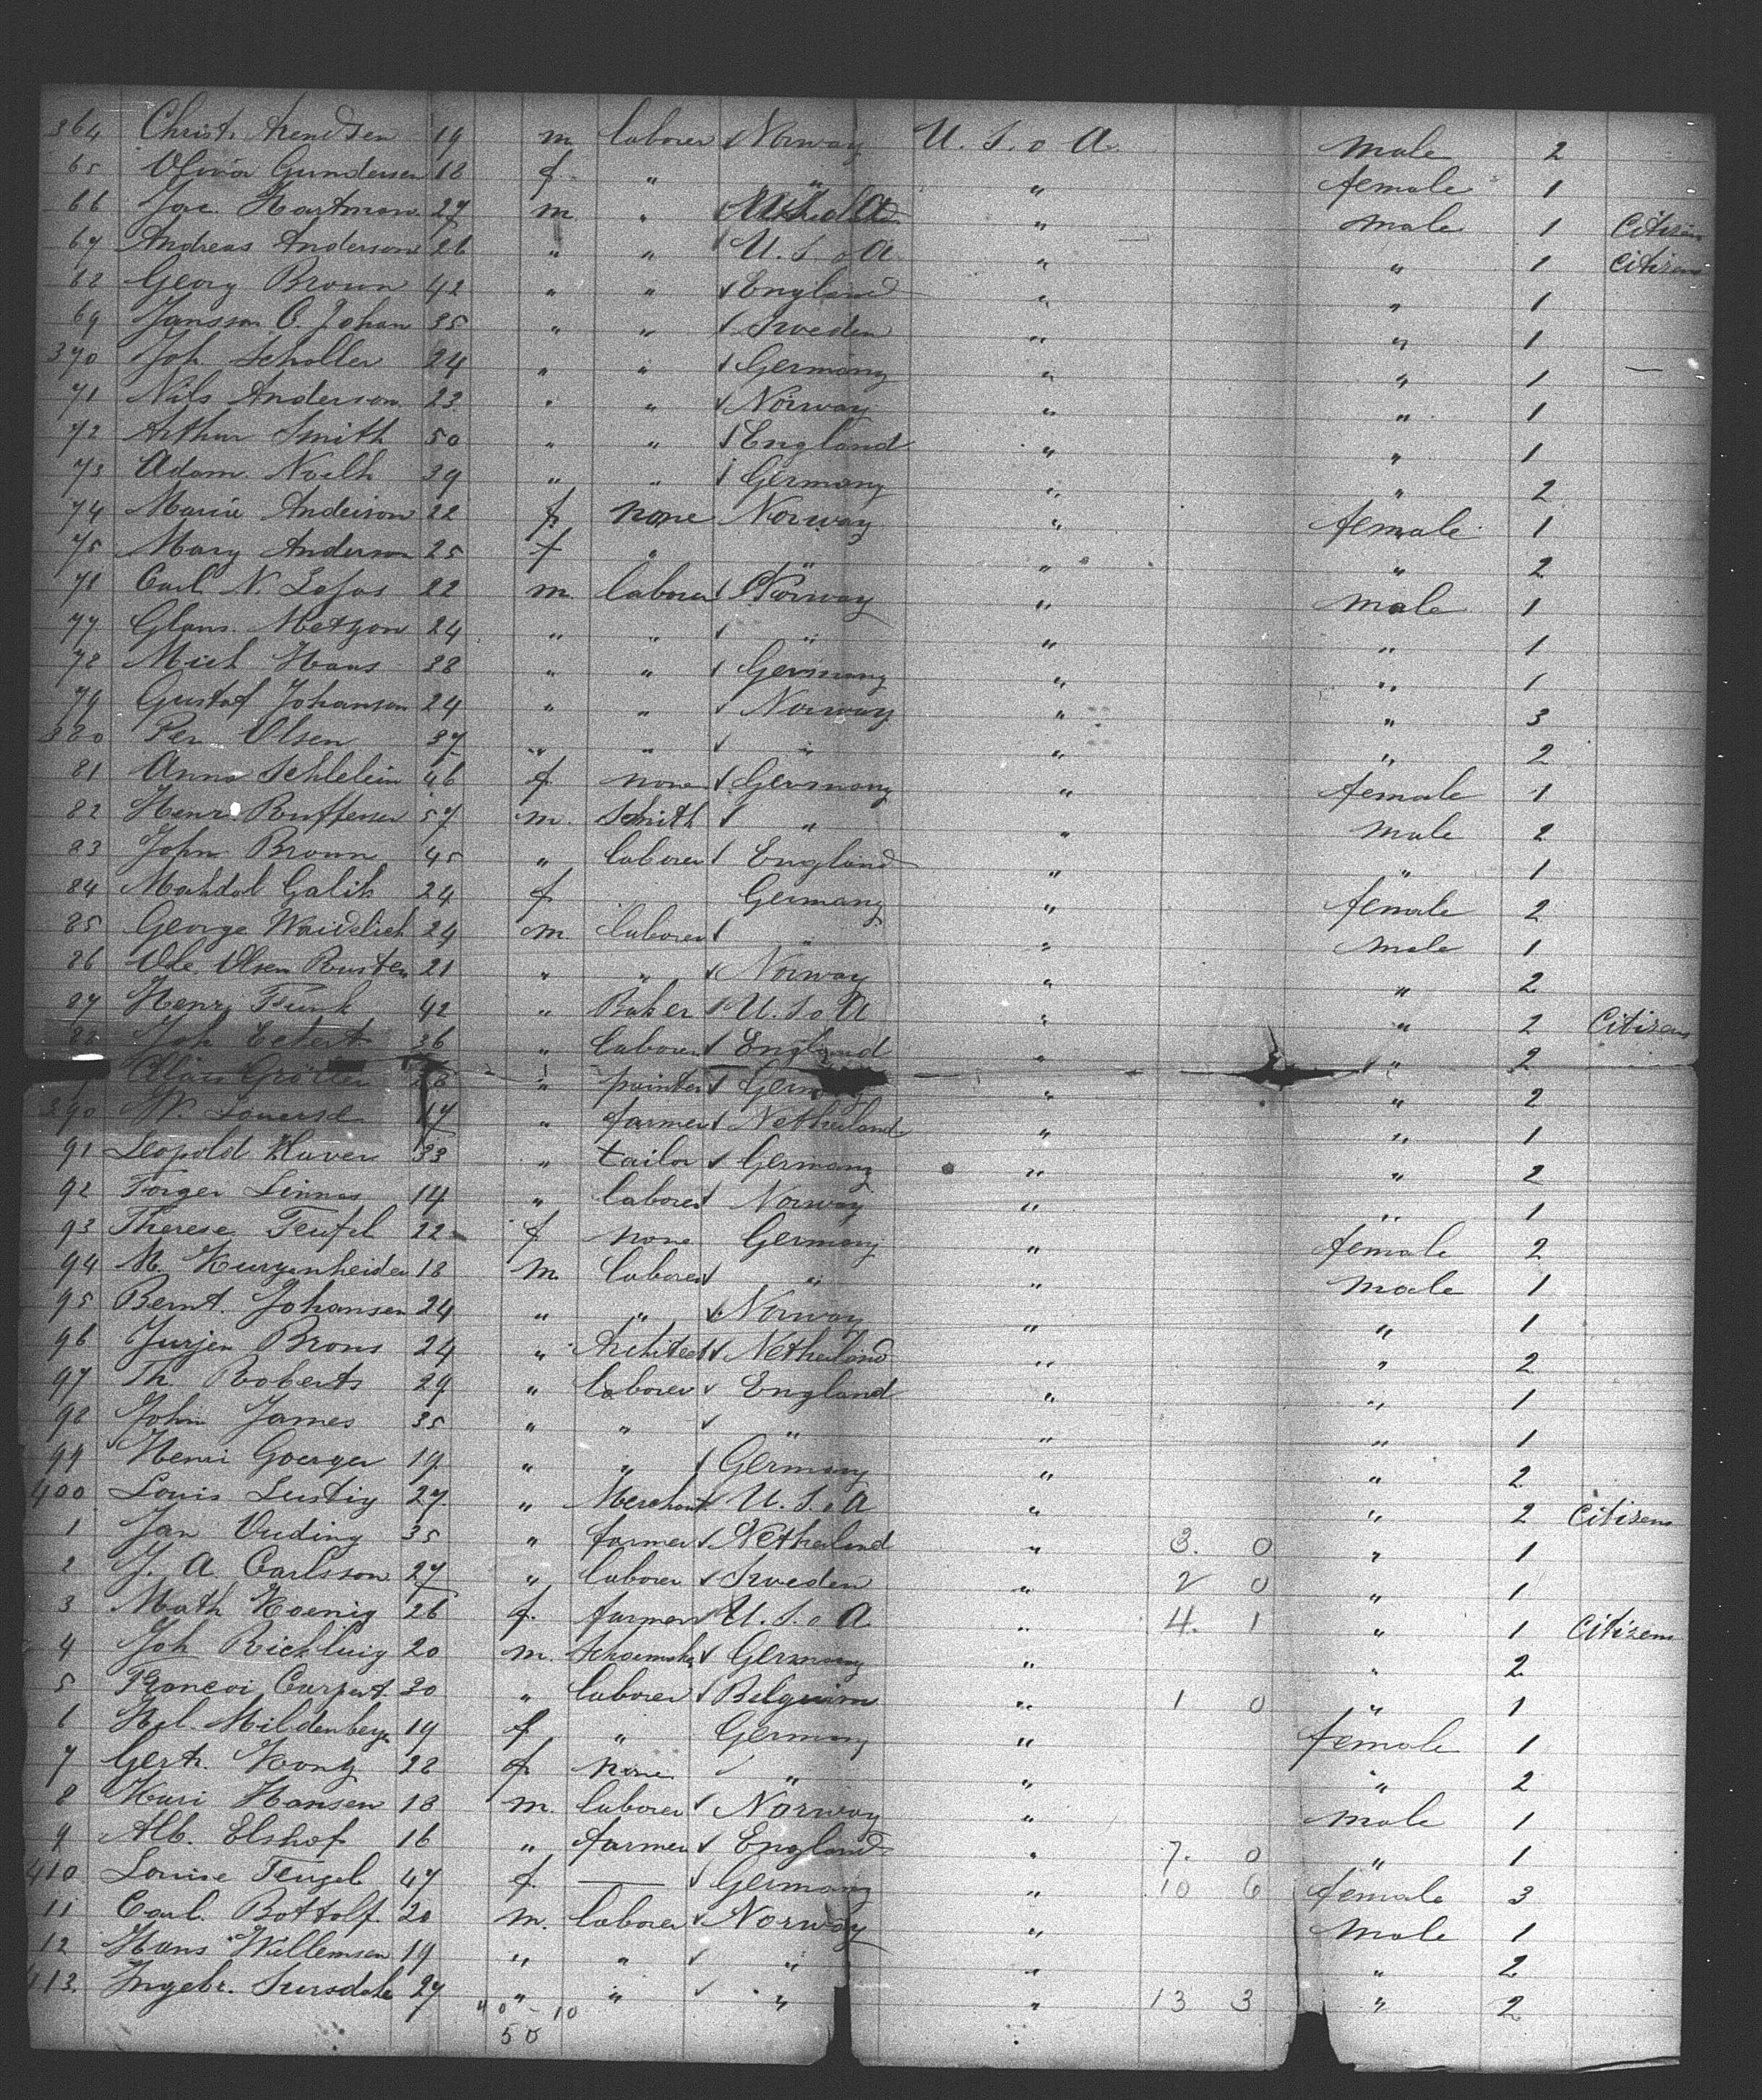 364 Christ. Arendsen 19 m laborer ✓ Norway U. S. o A. male 2
65 Olivia Gundersen 18 f " " " female 1
66 Jac. Hartman 27 m " U.S.o.A " male 1 Citizen
67 Andreas Anderson 26 " " U. S. o A " " 1 Citizens
68 Georg Brown 42 " " ✓ England " " 1
69 Jansson O. Johan 35 " " ✓ Sweden " " 1
370 Joh Scholler 24 " " ✓ Germany " " 1 —
71 Nils Anderson 23 " " ✓ Norway " " 1
72 Arthur Smith 50 " " ✓ England " " 1
73 Adam 39 " " ✓ Germany " " 2
74 Maria Anderson 22 f none Norway " female 1
75 Mary Anderson 25 f " " " " 2
76 Carl N. 22 m. laborer ✓ Norway " male 1
77 24 " " ✓ " " " 1
78 Mich Hans 28 " " ✓ Germany " " 1
79 Gustaf Johanson 24 " " ✓ Norway " " 3
380 Per Olsen 37 " " ✓ " " " 2
81 Anna Schlelein 46 f none ✓ Germany " female 1
82 Henr. 57 m. Smith ✓ " " male 2
83 John Brown 45 " laborer ✓ England " " 1
84 Galik 24 f Germany " female 2
85 George Waidelich 24 m. laborer ✓ " " male 1
86 Ole Olsen Rusten 21 " " ✓ Norway " " 2
87 Henry Funk 42 " Baker U. S o A " " 2 Citizens
88 Joh Eckert 36 " laborer ✓ England " " 2
28 " painter ✓ " " 2
390 17 " farmer ✓ Netherland " " 1
91 Leopold Haver 33 " tailor ✓ Germany " " 2
92 Torger Linnes 14 " laborer ✓ Norway " " 1
93 Therese Teufel 22 f none Germany " female 2
94 M. Kurzenheider 18 m. laborer ✓ " " male 1
95 Bernt. Johansen 24 " " ✓ Norway " " 1
96 Jurjen Brons 24 " Architect ✓ Netherland " " 2
97 Th. Roberts 29 " laborer ✓ England " " 1
98 John James 35 " " ✓ " " " 1
99 Henri Goerger 19 " " ✓ Germany " " 2
400 Louis Lustig 27 " Merchant U. S. o A " " 2 Citizens
1 Jan Vuding 35 " farmer ✓ Netherland " 3. 0 " 1
2 J. A. Carlsson 27 " laborer ✓ Sweden " 2 0 " 1
3 Math Koenig 26 f. farmer U. S. o A " 4. 1 " 1 Citizens
4 Joh 20 m. Schoemaker ✓ Germany " " 2
5 Francoi 30 " laborer ✓ Belguim " 1 0 " 1
6 Hel. Mildenberger 19 f " Germany " female 1
7 Gertr. 28 f. none ✓ " " " 2
8 Kari Hansen 18 m. laborer ✓ Norway " male 1
9 Alb. Elshof 16 " farmer ✓ England " 7. 0 " 1
410 Louise 47 f. — ✓ Germany " 10 6 female 3
11 Carl. Bottolf. 20 m. laborer ✓ Norway " male 1
12 Hans Willemsen 19 " " ✓ " " " 2
413. Ingebr. 27 " " ✓ " " 13 3 " 2
40 - 10
50